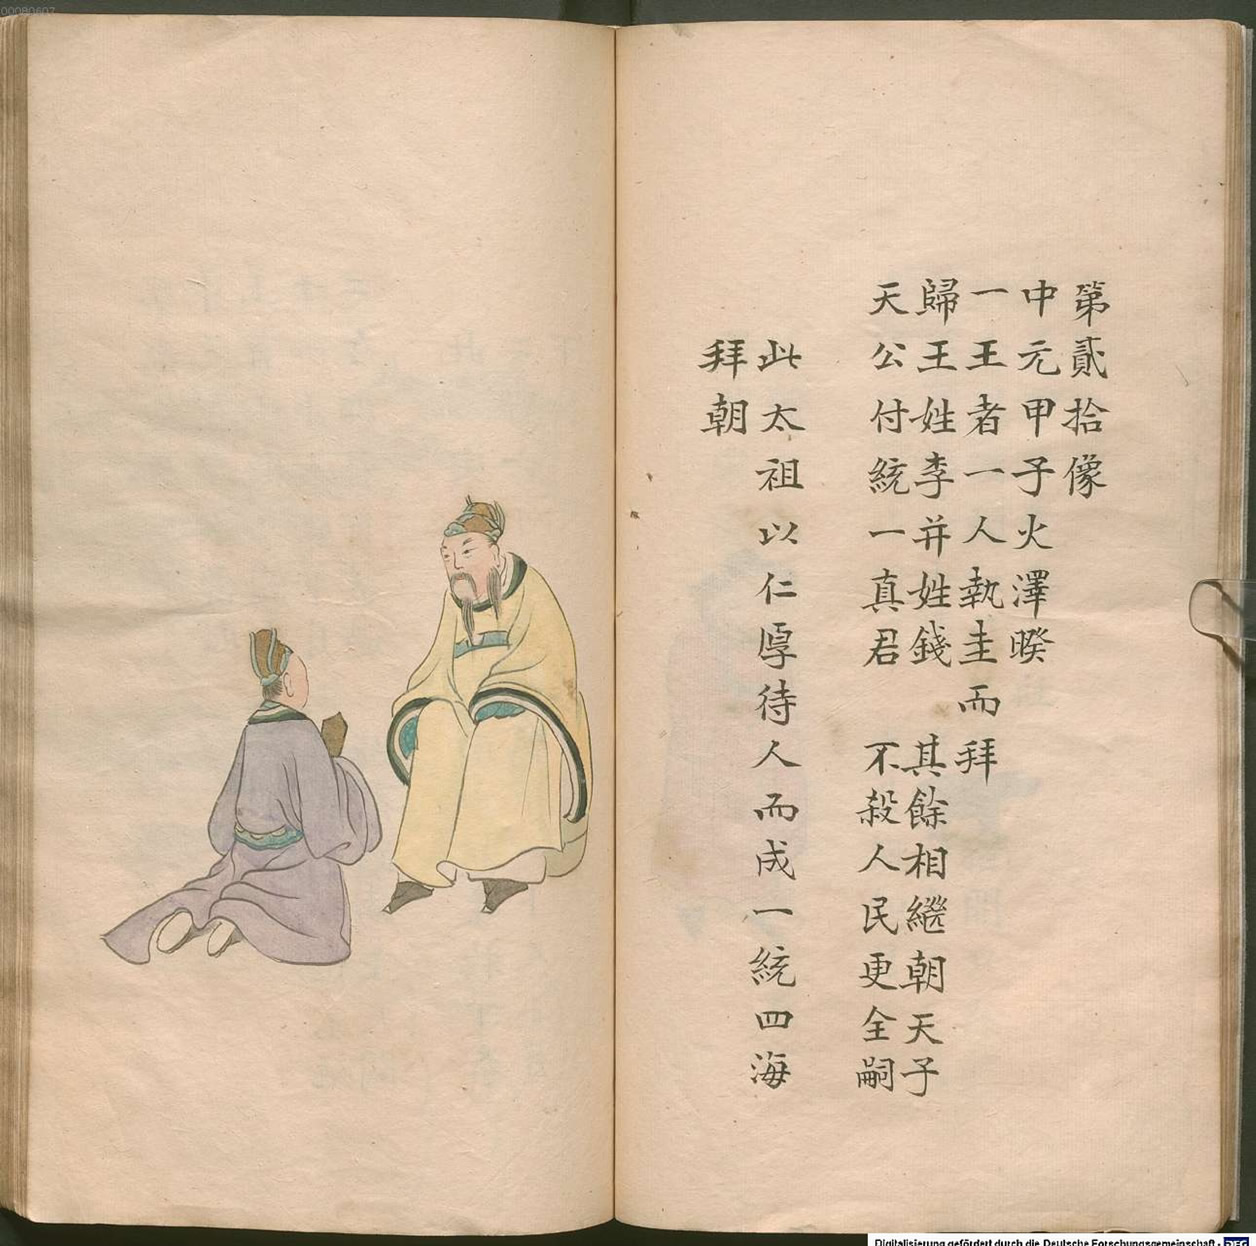 00080607
第貳拾像
中元甲子火澤暌
一王者一人執圭而拜
歸王姓李并姓錢 其餘相繼朝天子
天公付統一真君 不殺人民更全嗣
此太祖以仁厚待人而成一統四海
拜朝
Digitalisierung gefördert durch die Deutsche Forschungsgemeinschaft - DFG